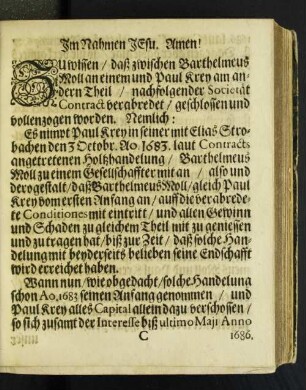 Im Nahmen JEsu. Amen!
ZUwissen / daß zwischen Barthelmeus
Moll an einem und Paul Krey am an-
dern Theil / nachfolgender Societät
Contract verabredet / geschlossen und
vollenzogen worden. Nemlich:
Es nimt Paul Krey in seiner mit Elias Stro-
bachen den 3 Octobr. Ao. 1683. laut Contracts
angetretenen Holtzhandelung / Barthelmeus
Moll zu einem Gesellschaffter mit an / also und
dergestalt / daß Barthelmeus Moll / gleich Paul
Krey vom ersten Anfang an / auff die verabrede-
te Conditiones mit eintritt / und allen Gewinn
und Schaden zu gleichem Theil mit zu geniessen
und zu tragen hat / biß zur Zeit / daß solche Han-
delung mit beyderseits belieben seine Endschafft
wird erreichet haben.
Wann nun / wie obgedacht / solche Handelung
schon Ao. 1683 seinen Anfang genommen / und
Paul Krey alles Capital allein dazu verschossen /
so sich zusamt der Interesse biß ultimo Maji Anno
C 1686.